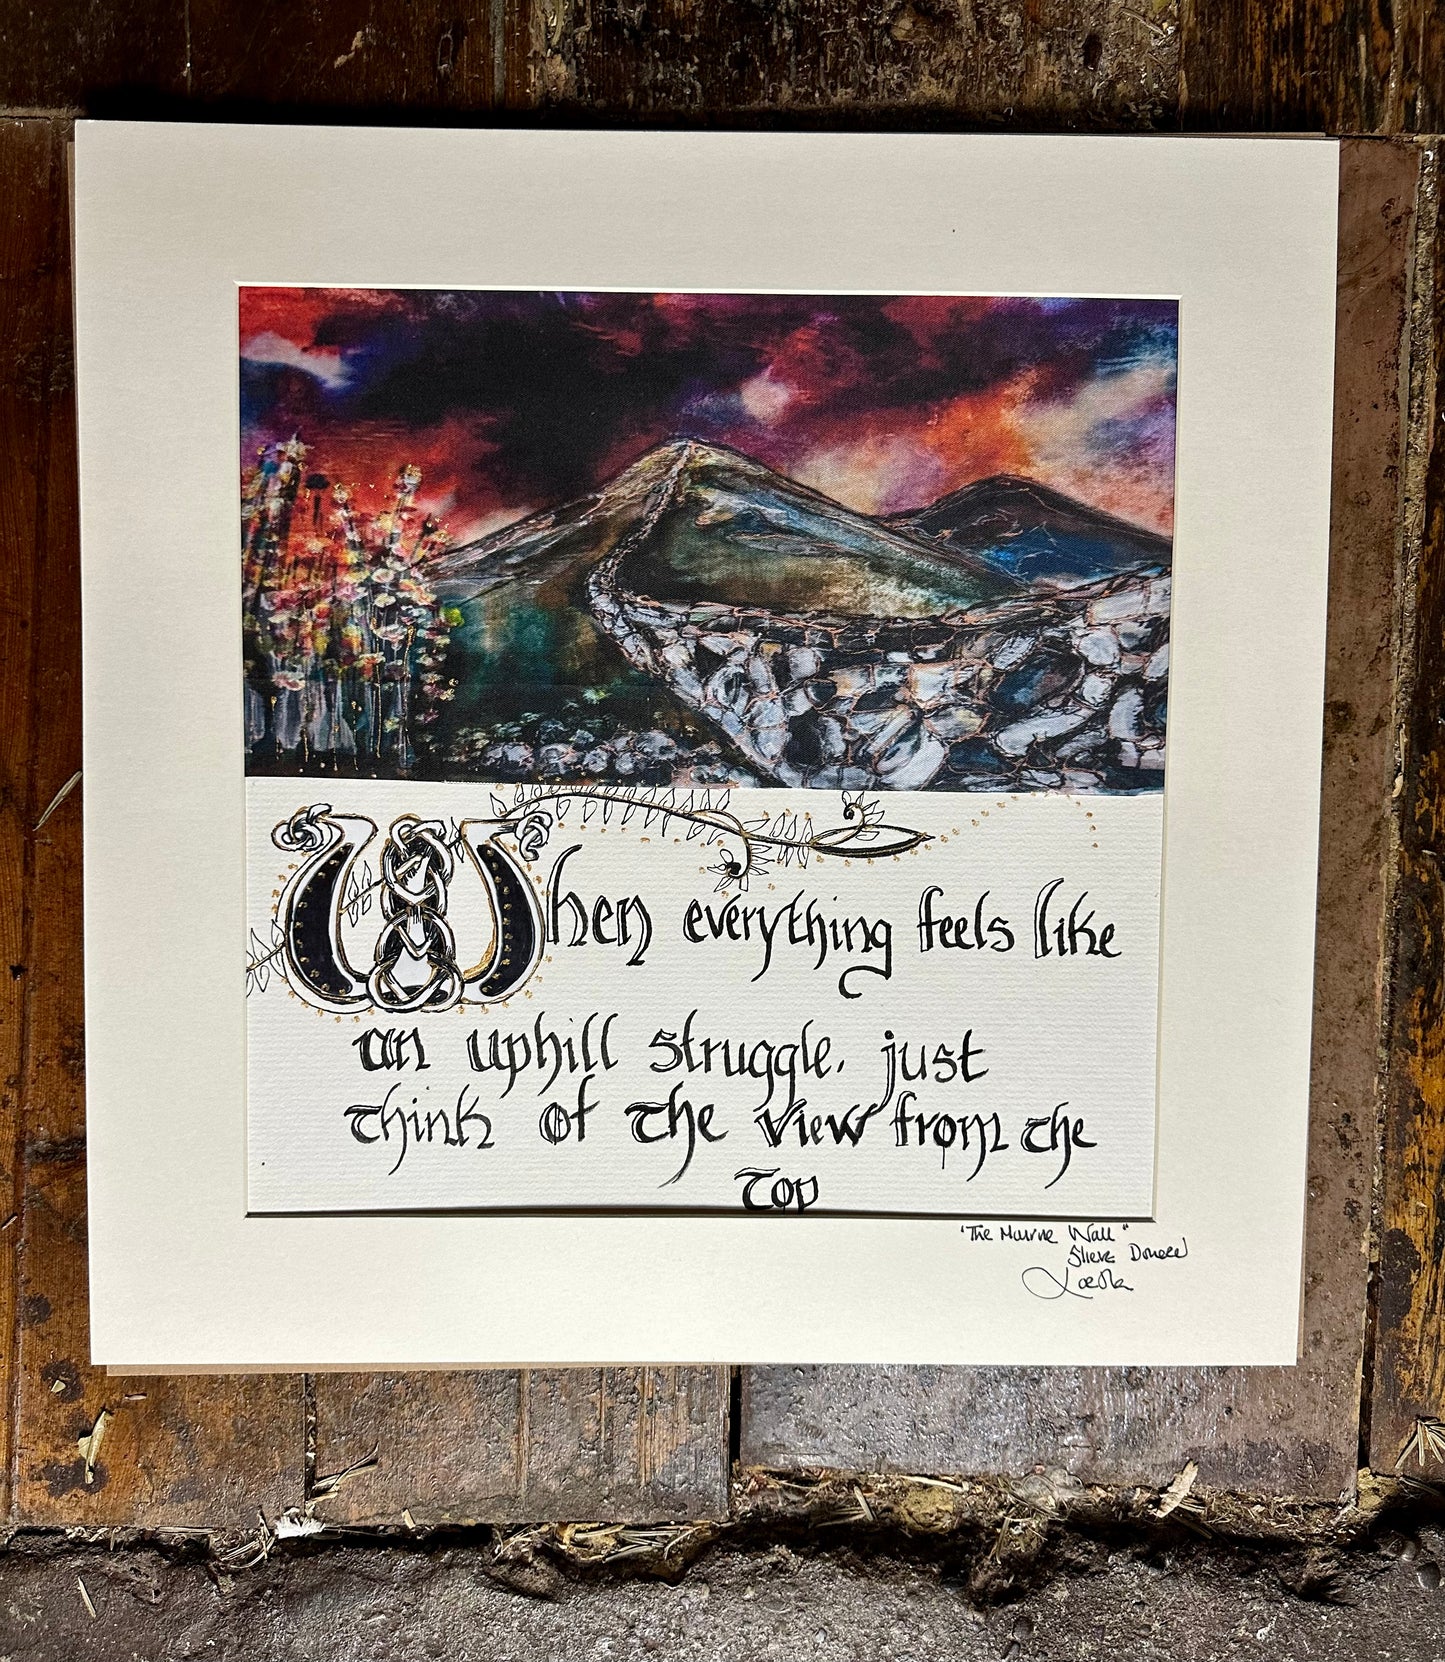 When everything feels like
an uphill struggle, just
think of the view from the
top
"The Mourne Wall"
Slieve Donard